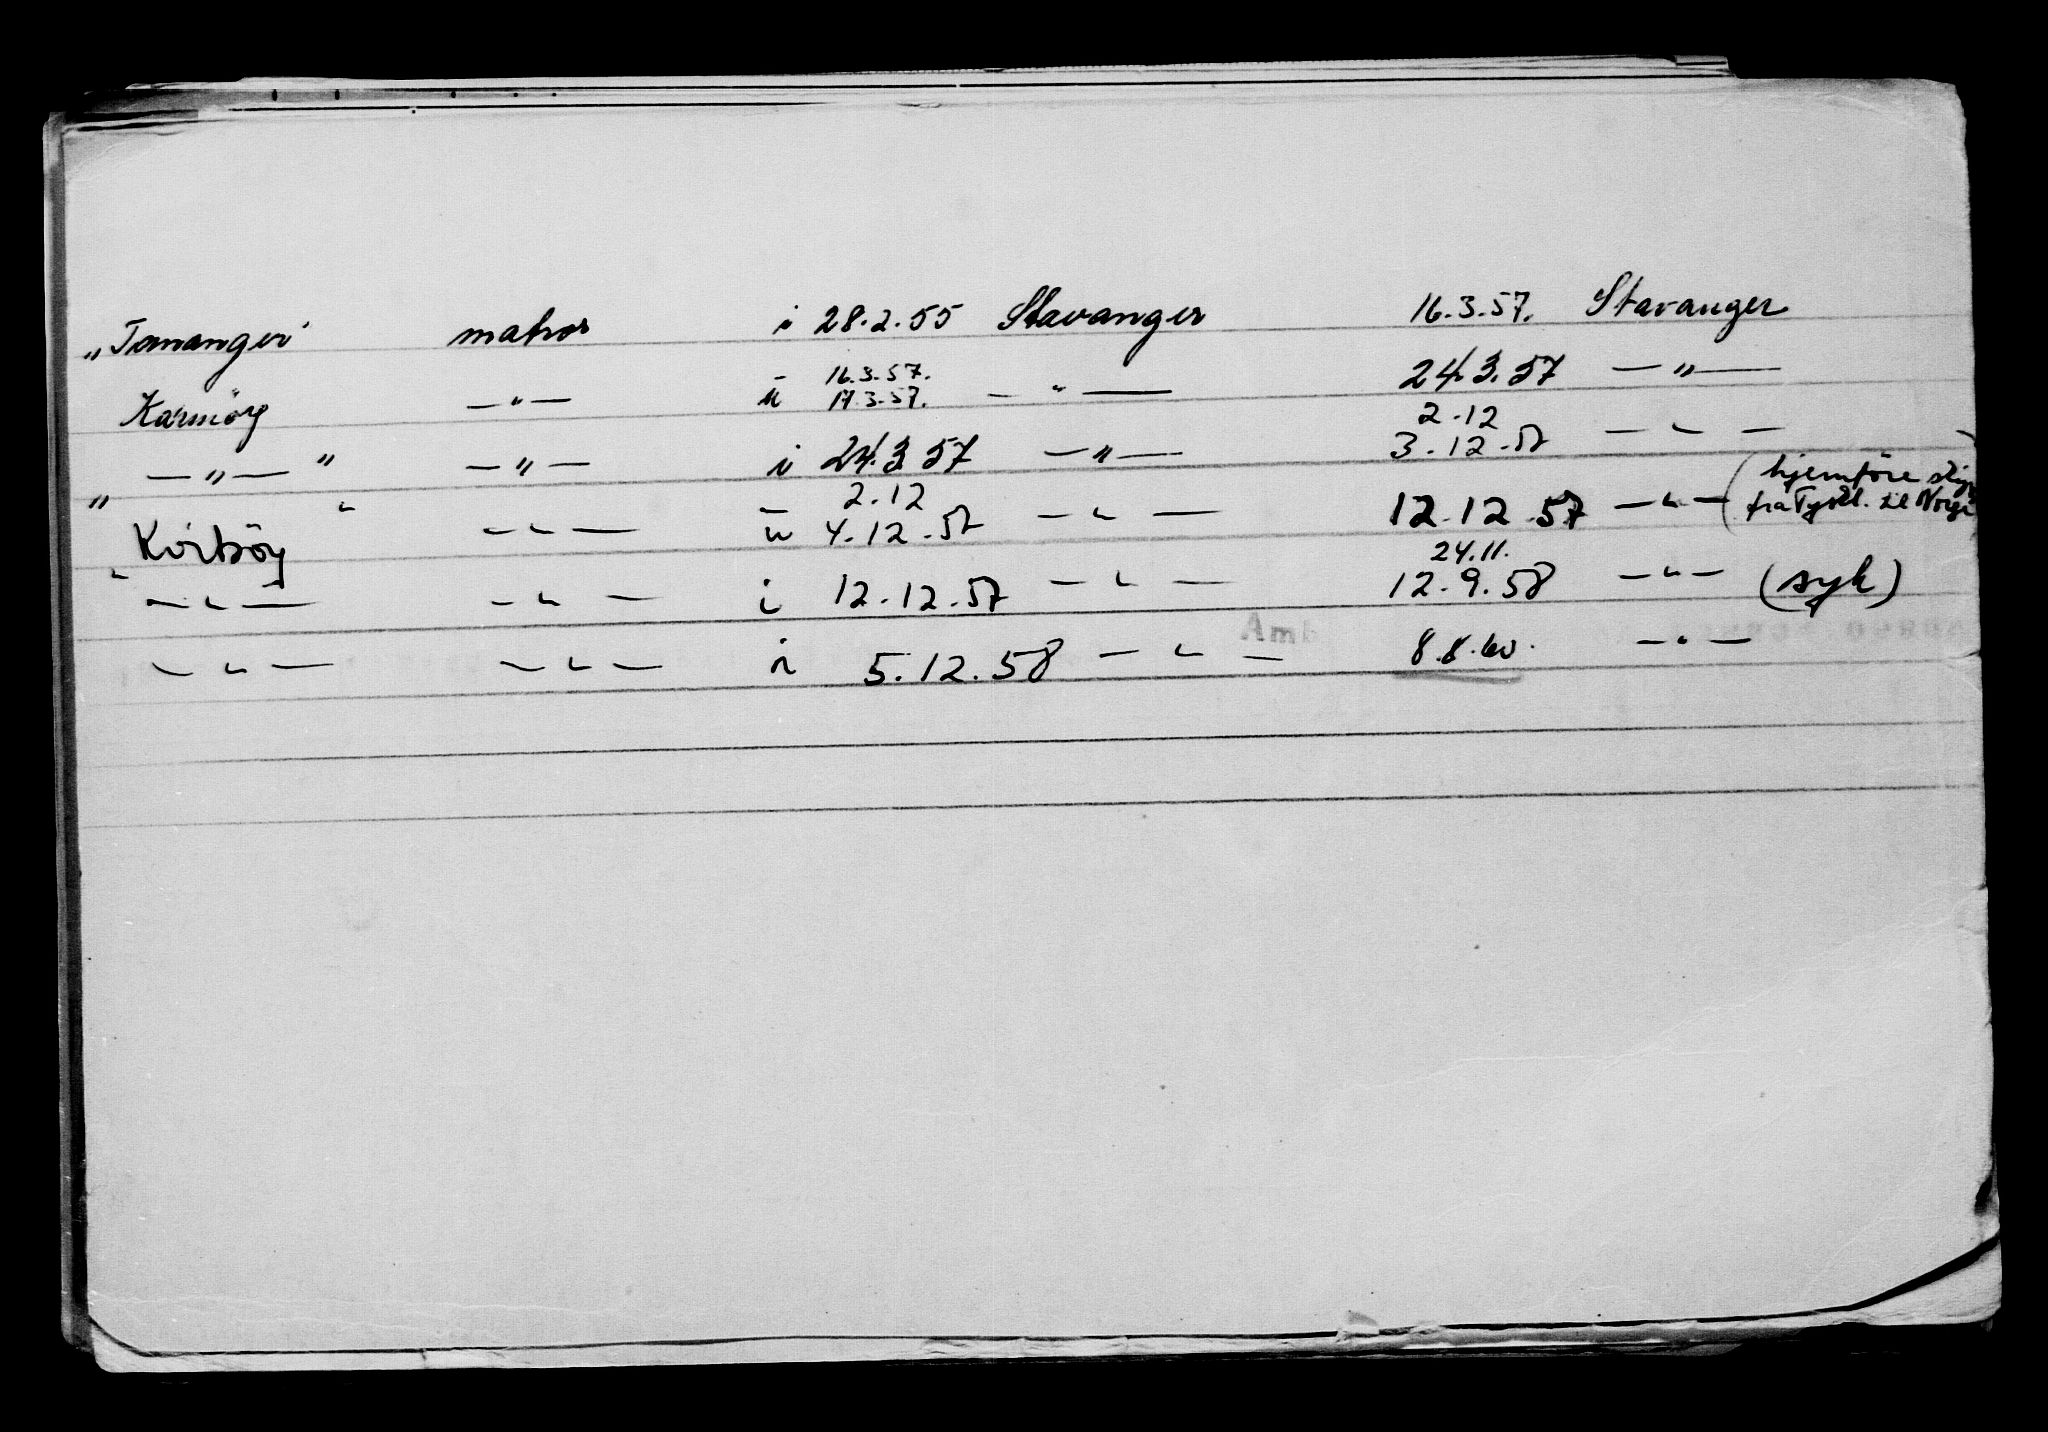 „Tananger" matros i 28.2.55 Stavanger 16.3.57. Stavanger
Karmöy — " — ü 16.3.57. 17.3.57. — " — 24.3.57 — " —
— " — " — " — i 24.3.57 — " — 2.12 3.12.57 — " —
„ Kvitsöy " — " — ü 2.12 4.12.57 — " — 12.12.57 — " — (hjemföre
fra Tyskl. til Norge
" — " — — " — i 12.12.57 — " — 24.11. 12.9.58 — " — (syk)
— " — — " — i 5.12.58 — " — 8.8.60. — " —
Amb